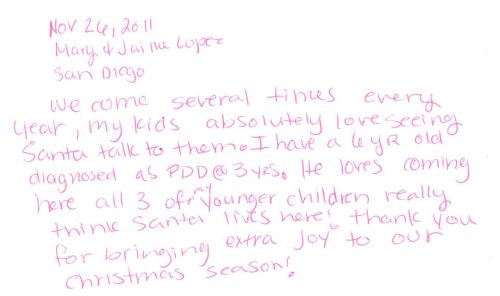 Nov 26, 2011
Mary & Jaime Lopez
San Diego
We come several times every
year, my kids absolutely love seeing
Santa talk to them. I have a 6 yr old
diagnosed as PDD @ 3 yrs. He loves coming
here all 3 of my younger children really
think Santa lives here! Thank you
for bringing extra Joy to our
Christmas season!